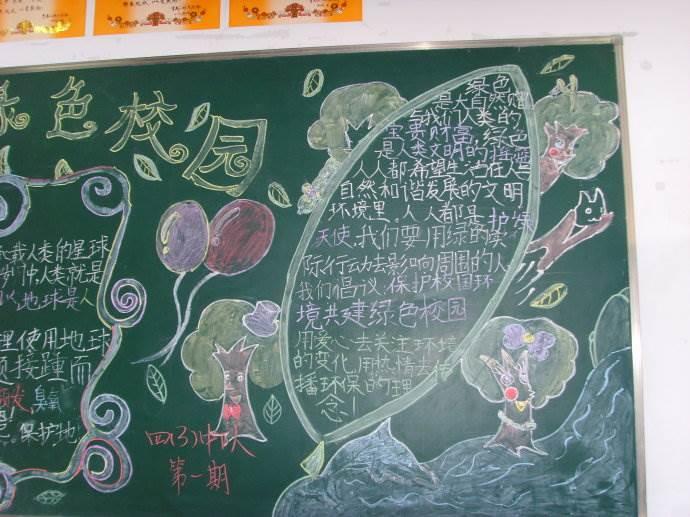 绿色校园
绿色
是大自然赠
与我们人类的
宝贵财富,绿色
是人类文明的摇篮
人人都希望生活在人与
自然和谐发展的文明
环境里。人人都是护绿
天使,我们要用绿的实
际行动去影响周围的人
我们倡议:保护校园环
境共建绿色校园
用爱心去关注环境
的变化,用热情去传
播环保的理
念!
我人类的星球
岁时,人类就是
地球是人
理使用地球
接踵而
臭氧
保护地
四(3)中队
第一期